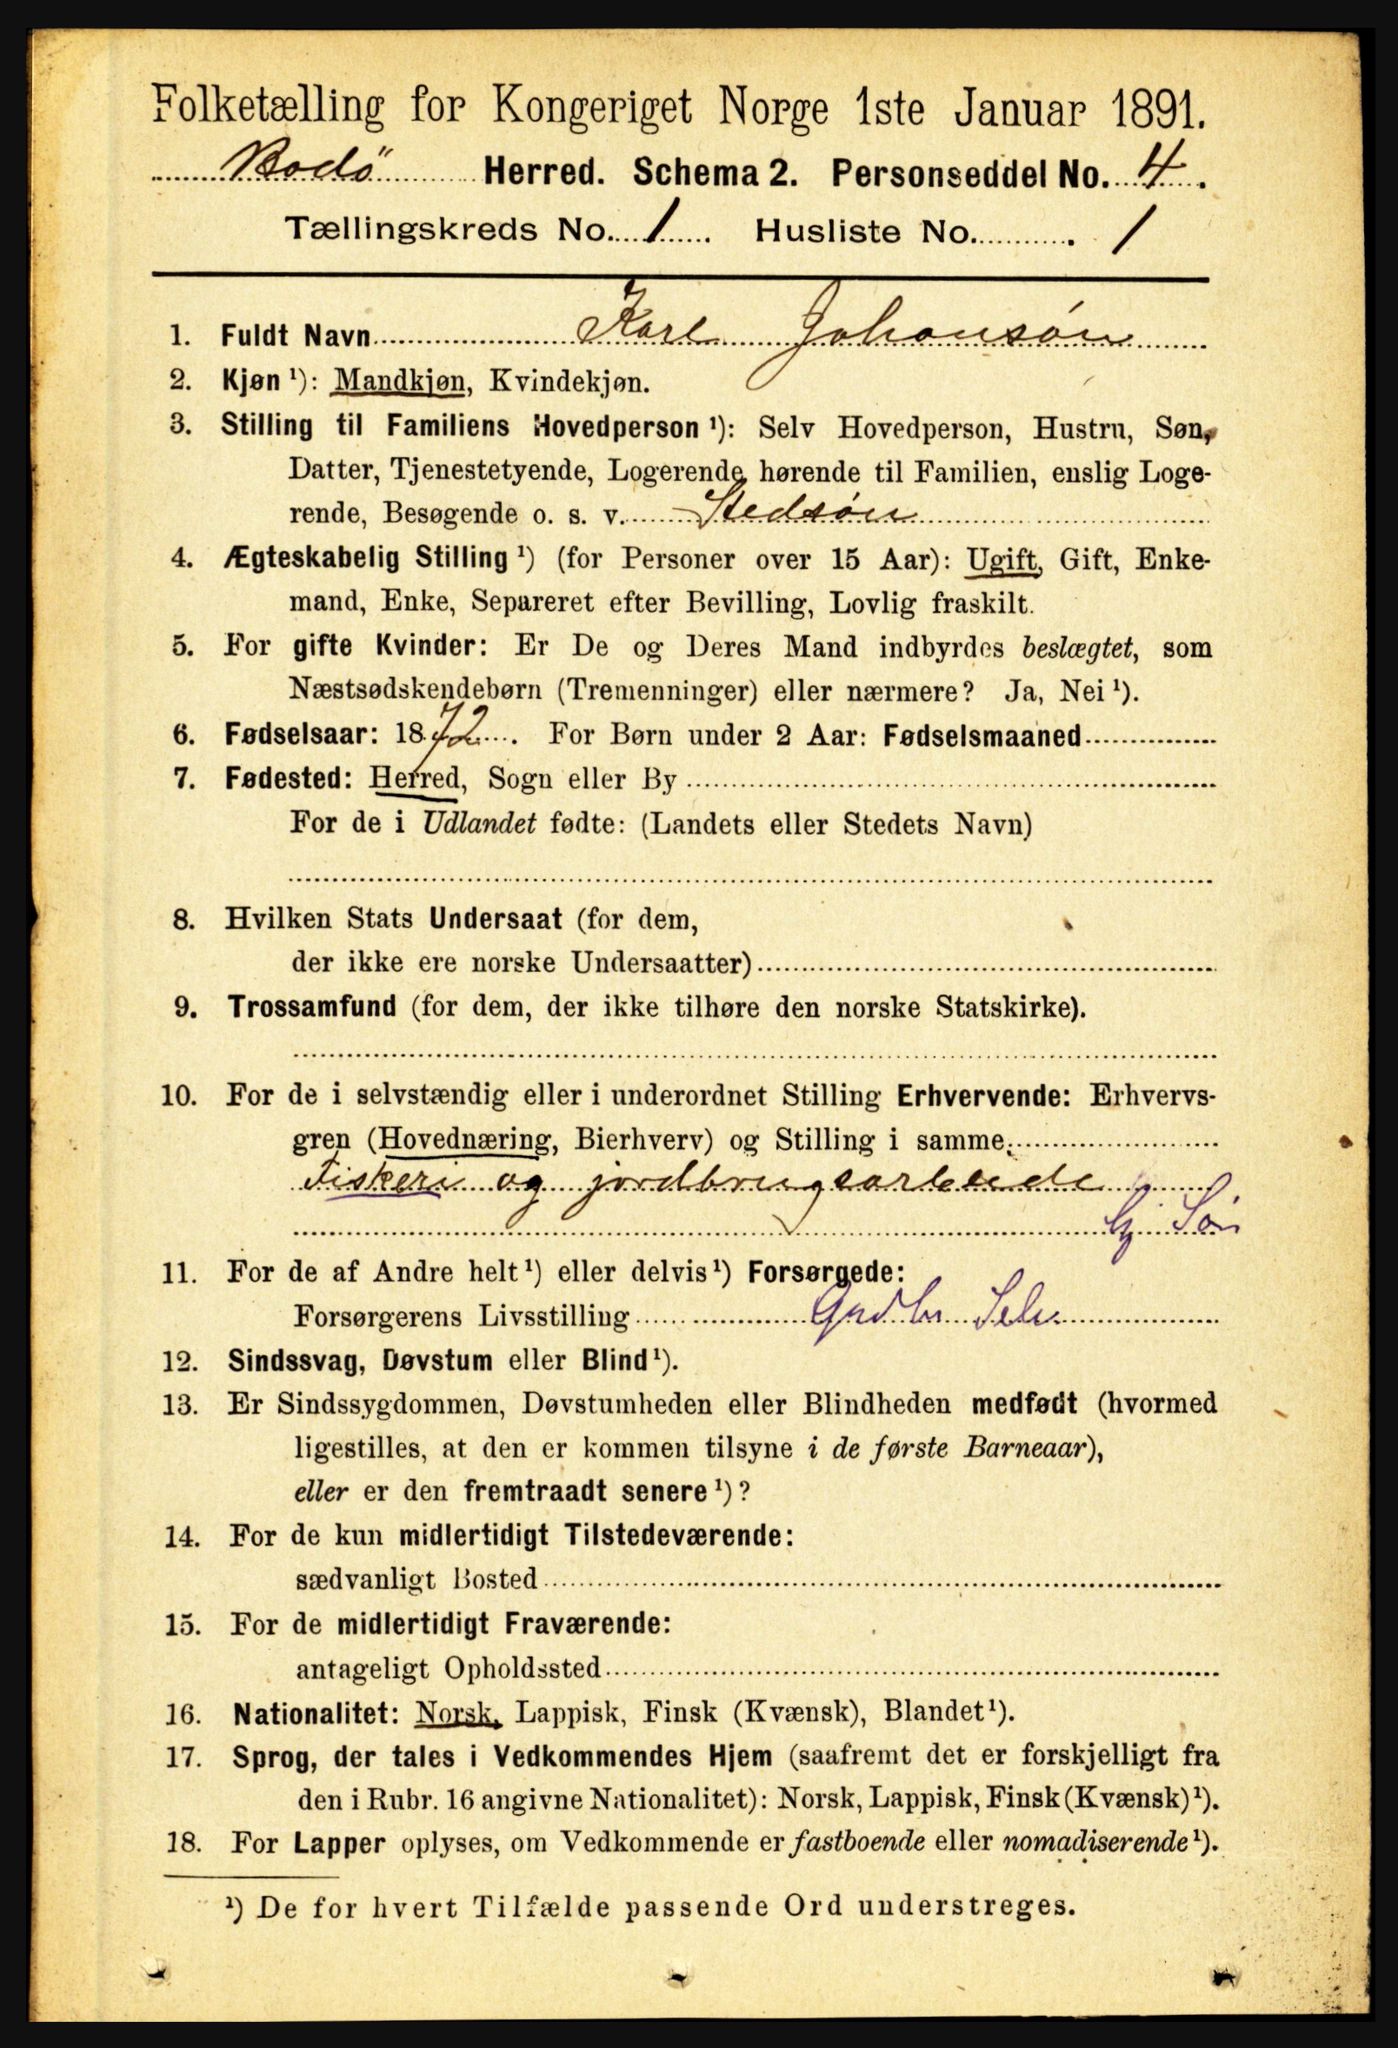 Folketælling for Kongeriget Norge 1ste Januar 1891.
Bodö Herred. Schema 2. Personseddel No. 4.
Tællingskreds No. 1. Husliste No. 1
1. Fuldt Navn Karl Johansön
2. Kjøn ¹): Mandkjøn, Kvindekjøn.
3. Stilling til Familiens Hovedperson ¹): Selv Hovedperson, Hustru, Søn,
Datter, Tjenestetyende, Logerende hørende til Familien, enslig Loge-
rende, Besøgende o. s. v. Stedsön
4. Ægteskabelig Stilling ¹) (for Personer over 15 Aar): Ugift, Gift, Enke-
mand, Enke, Separeret efter Bevilling, Lovlig fraskilt.
5. For gifte Kvinder: Er De og Deres Mand indbyrdes beslægtet, som
Næstsødskendebørn (Tremenninger) eller nærmere? Ja, Nei ¹).
6. Fødselsaar: 1872. For Børn under 2 Aar: Fødselsmaaned
7. Fødested: Herred, Sogn eller By
For de i Udlandet fødte: (Landets eller Stedets Navn)
8. Hvilken Stats Undersaat (for dem,
der ikke ere norske Undersaatter)
9. Trossamfund (for dem, der ikke tilhøre den norske Statskirke).
10. For de i selvstændig eller i underordnet Stilling Erhvervende: Erhvervs-
gren (Hovednæring, Bierhverv) og Stilling i samme.
Fiskeri og jordbrugsarbeide
Gj. Sön
11. For de af Andre helt ¹) eller delvis ¹) Forsørgede:
Forsørgerens Livsstilling Gadbr Selv
12. Sindssvag, Døvstum eller Blind ¹).
13. Er Sindssygdommen, Døvstumheden eller Blindheden medfødt (hvormed
ligestilles, at den er kommen tilsyne i de første Barneaar),
eller er den fremtraadt senere ¹)?
14. For de kun midlertidigt Tilstedeværende:
sædvanligt Bosted
15. For de midlertidigt Fraværende:
antageligt Opholdssted
16. Nationalitet: Norsk, Lappisk, Finsk (Kvænsk), Blandet ¹).
17. Sprog, der tales i Vedkommendes Hjem (saafremt det er forskjelligt fra
den i Rubr. 16 angivne Nationalitet): Norsk, Lappisk, Finsk (Kvænsk) ¹).
18. For Lapper oplyses, om Vedkommende er fastboende eller nomadiserende ¹).
¹) De for hvert Tilfælde passende Ord understreges.